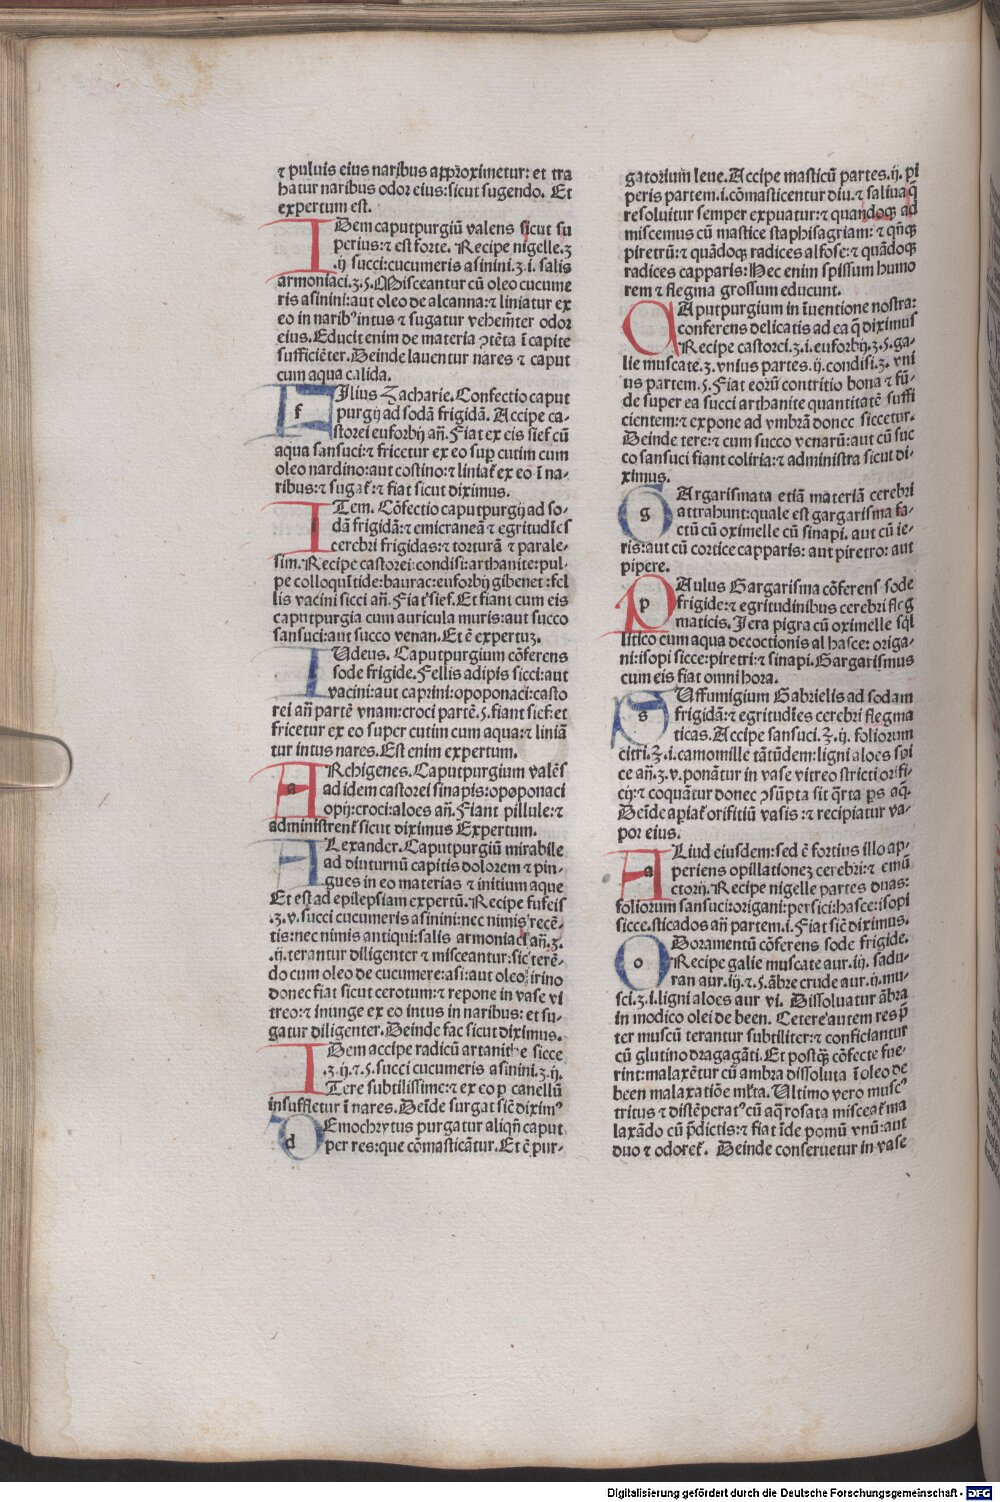 ⁊ puluis eius naribus approximetur: et tra
hatur naribus odor eius:sicut sugendo. Et
expertum est.
IDem caputpurgiū valens sicut su
perius:⁊ est forte. Recipe nigelle.ʒ
.ij succi:cucumeris asinini.ʒ.i. salis
armoniaci.ʒ.5.Misceantur cū oleo cucume
ris asinini:aut oleo de alcanna:⁊ liniatur ex
eo in naribꝰ intus ⁊ sugatur vehemēter odor
eius. Educit enim de materia ꝯtēta ī capite
sufficiēter. Deinde lauentur nares ⁊ caput
cum aqua calida.
FIlius Zacharie. Confectio caput
purgij ad sodā frigidā. Accipe ca-
storei euforbij añ. Fiat ex eis sief cū
aqua sansuci:⁊ fricetur ex eo sup cutim cum
oleo nardino:aut costino:⁊ liniat̄ ex eo ī na-
ribus:⁊ sugat̄:⁊ fiat sicut diximus.
ITem. Cōfectio caputpurgij ad so-
dā frigidā:⁊ emicraneā ⁊ egritudīes
cerebri frigidas:⁊ torturā ⁊ parale-
sim. Recipe castorei:condisi:arthanite:pul-
pe colloquītide:baurac:euforbij gibenet :fel
lis vacini sicci añ. Fiat sief. Et fiant cum eis
caputpurgia cum auricula muris:aut succo
sansuci:aut succo venan. Et ē expertuʒ.
IUdeus. Caputpurgium cōferens
sode frigide. Fellis adipis sicci:aut
vacini:aut caprini:opoponaci:casto
rei añ partē vnam:croci partē.5.fiant sief:et
fricetur ex eo super cutim cum aqua:⁊ liniā
tur intus nares. Est enim expertum.
ARchigenes. Caputpurgium valēs
ad idem castorei sinapis:opoponaci
opij:croci:aloes añ. Fiant pillule:⁊
administrent̄ sicut diximus Expertum.
ALexander. Caputpurgiū mirabile
ad diuturnū capitis dolorem ⁊ pin-
gues in eo materias ⁊ initium aque
Et est ad epilepsiam expertū. Recipe fufeis
.ʒ.v. succi cucumeris asinini:nec nimis recē-
tis:nec nimis antiqui:salis armoniaci añ.ʒ.
.ij.terantur diligenter ⁊ misceantur:sic terē-
do cum oleo de cucumere:asi:aut oleo irino
donec fiat sicut cerotum:⁊ repone in vase vi
treo:⁊ inunge ex eo intus in naribus: et su-
gatur diligenter. Deinde fac sicut diximus.
IDem accipe radicū artanithe sicce
.ʒ.ij.⁊.5.succi cucumeris asinini.ʒ.ij.
Tere subtilissime:⁊ ex eo p canellū
insuffletur ī nares. Deīde surgat sic̄ diximꝰ
DEmochrytus purgatur aliqñ caput
per res:que cōmasticātur. Et ē pur-
gatorium leue. Accipe masticū partes.ij. pi
peris partem.i.cōmasticentur diu.⁊ saliua q̄
resoluitur semper expuatur:⁊ quandoqꝫ ad
miscemus cū mastice staphisagriam: ⁊ qn̄qꝫ
piretrū:⁊ quādoqꝫ radices alfose:⁊ quādoqꝫ
radices capparis: Hec enim spissum humo
rem ⁊ flegma grossum educunt.
CAputpurgium in īuentione nostra:
conferens delicatis ad ea q̄ diximus
Recipe castorei.ʒ.i.euforbij.ʒ.5.ga-
lie muscate.ʒ.vnius partes.ij.condisi.ʒ. vni
us partem.5.Fiat eorū contritio bona ⁊ fū-
de super ea succi arthanite quantitatē suffi
cientem:⁊ expone ad vmbrā donec siccetur.
Deinde tere:⁊ cum succo venarū:aut cū suc
co sansuci fiant coliria:⁊ administra sicut di-
ximus.
GArgarismata etiā materiā cerebri
attrahunt:quale est gargarisma fa-
ctū cū oximelle cū sinapi. aut cū ie-
ris:aut cū cortice capparis: aut piretro: aut
pipere.
PAulus Gargarisma cōferens sode
frigide:⁊ egritudinibus cerebri fleg
maticis. Jera pigra cū oximelle sql
litico cum aqua decoctionis al hasce: origa-
ni:isopi sicce:piretri:⁊ sinapi. Gargarismus
cum eis fiat omni hora.
SUffumigium Gabrielis ad sodam
frigidā:⁊ egritudīes cerebri flegma
ticas. Accipe sansuci.ʒ.ij. foliorum
citri.ʒ.i.camomille tātūdem:ligni aloes spi
ce añ.ʒ.v.ponātur in vase vitreo stricti orifi-
cij:⁊ coquātur donec ꝯsūpta sit q̄rta ps aq̄.
Deīde apiat̄ orifitiū vasis :⁊ recipiatur va-
por eius.
ALiud eiusdem:sed ē fortius illo ap-
periens opillationeʒ cerebri:⁊ emū
ctorij. Recipe nigelle partes duas:
foliorum sansuci:origani:persici:hasce:isopi
sicce.sticados añ partem.i. Fiat sic̄ diximus.
ODoramentū cōferens sode frigide.
Recipe galie muscate aur.iij. sadu-
ran aur.iij.⁊.5.ābre crude aur.ij.mu-
sci.ʒ.i.ligni aloes aur vi. Dissoluatur ābra
in modico olei de been. Cetere autem res p̄
ter muscū terantur subtiliter:⁊ conficiantur
cū glutino dragagāti. Et postqꝫ cōfecte fue-
rint:malaxētur cū ambra dissoluta ī oleo de
been malaxatiōe mlta. Ultimo vero muscꝰ
tritus ⁊ distēperatꝰ cū aq̄ rosata misceat̄ ma
laxādo cū p̄dictis:⁊ fiat īde pomū vnū:aut
duo ⁊ odoret̄. Deinde conseruetur in vase
Digitalisierung gefördert durch die Deutsche Forschungsgemeinschaft - DFG